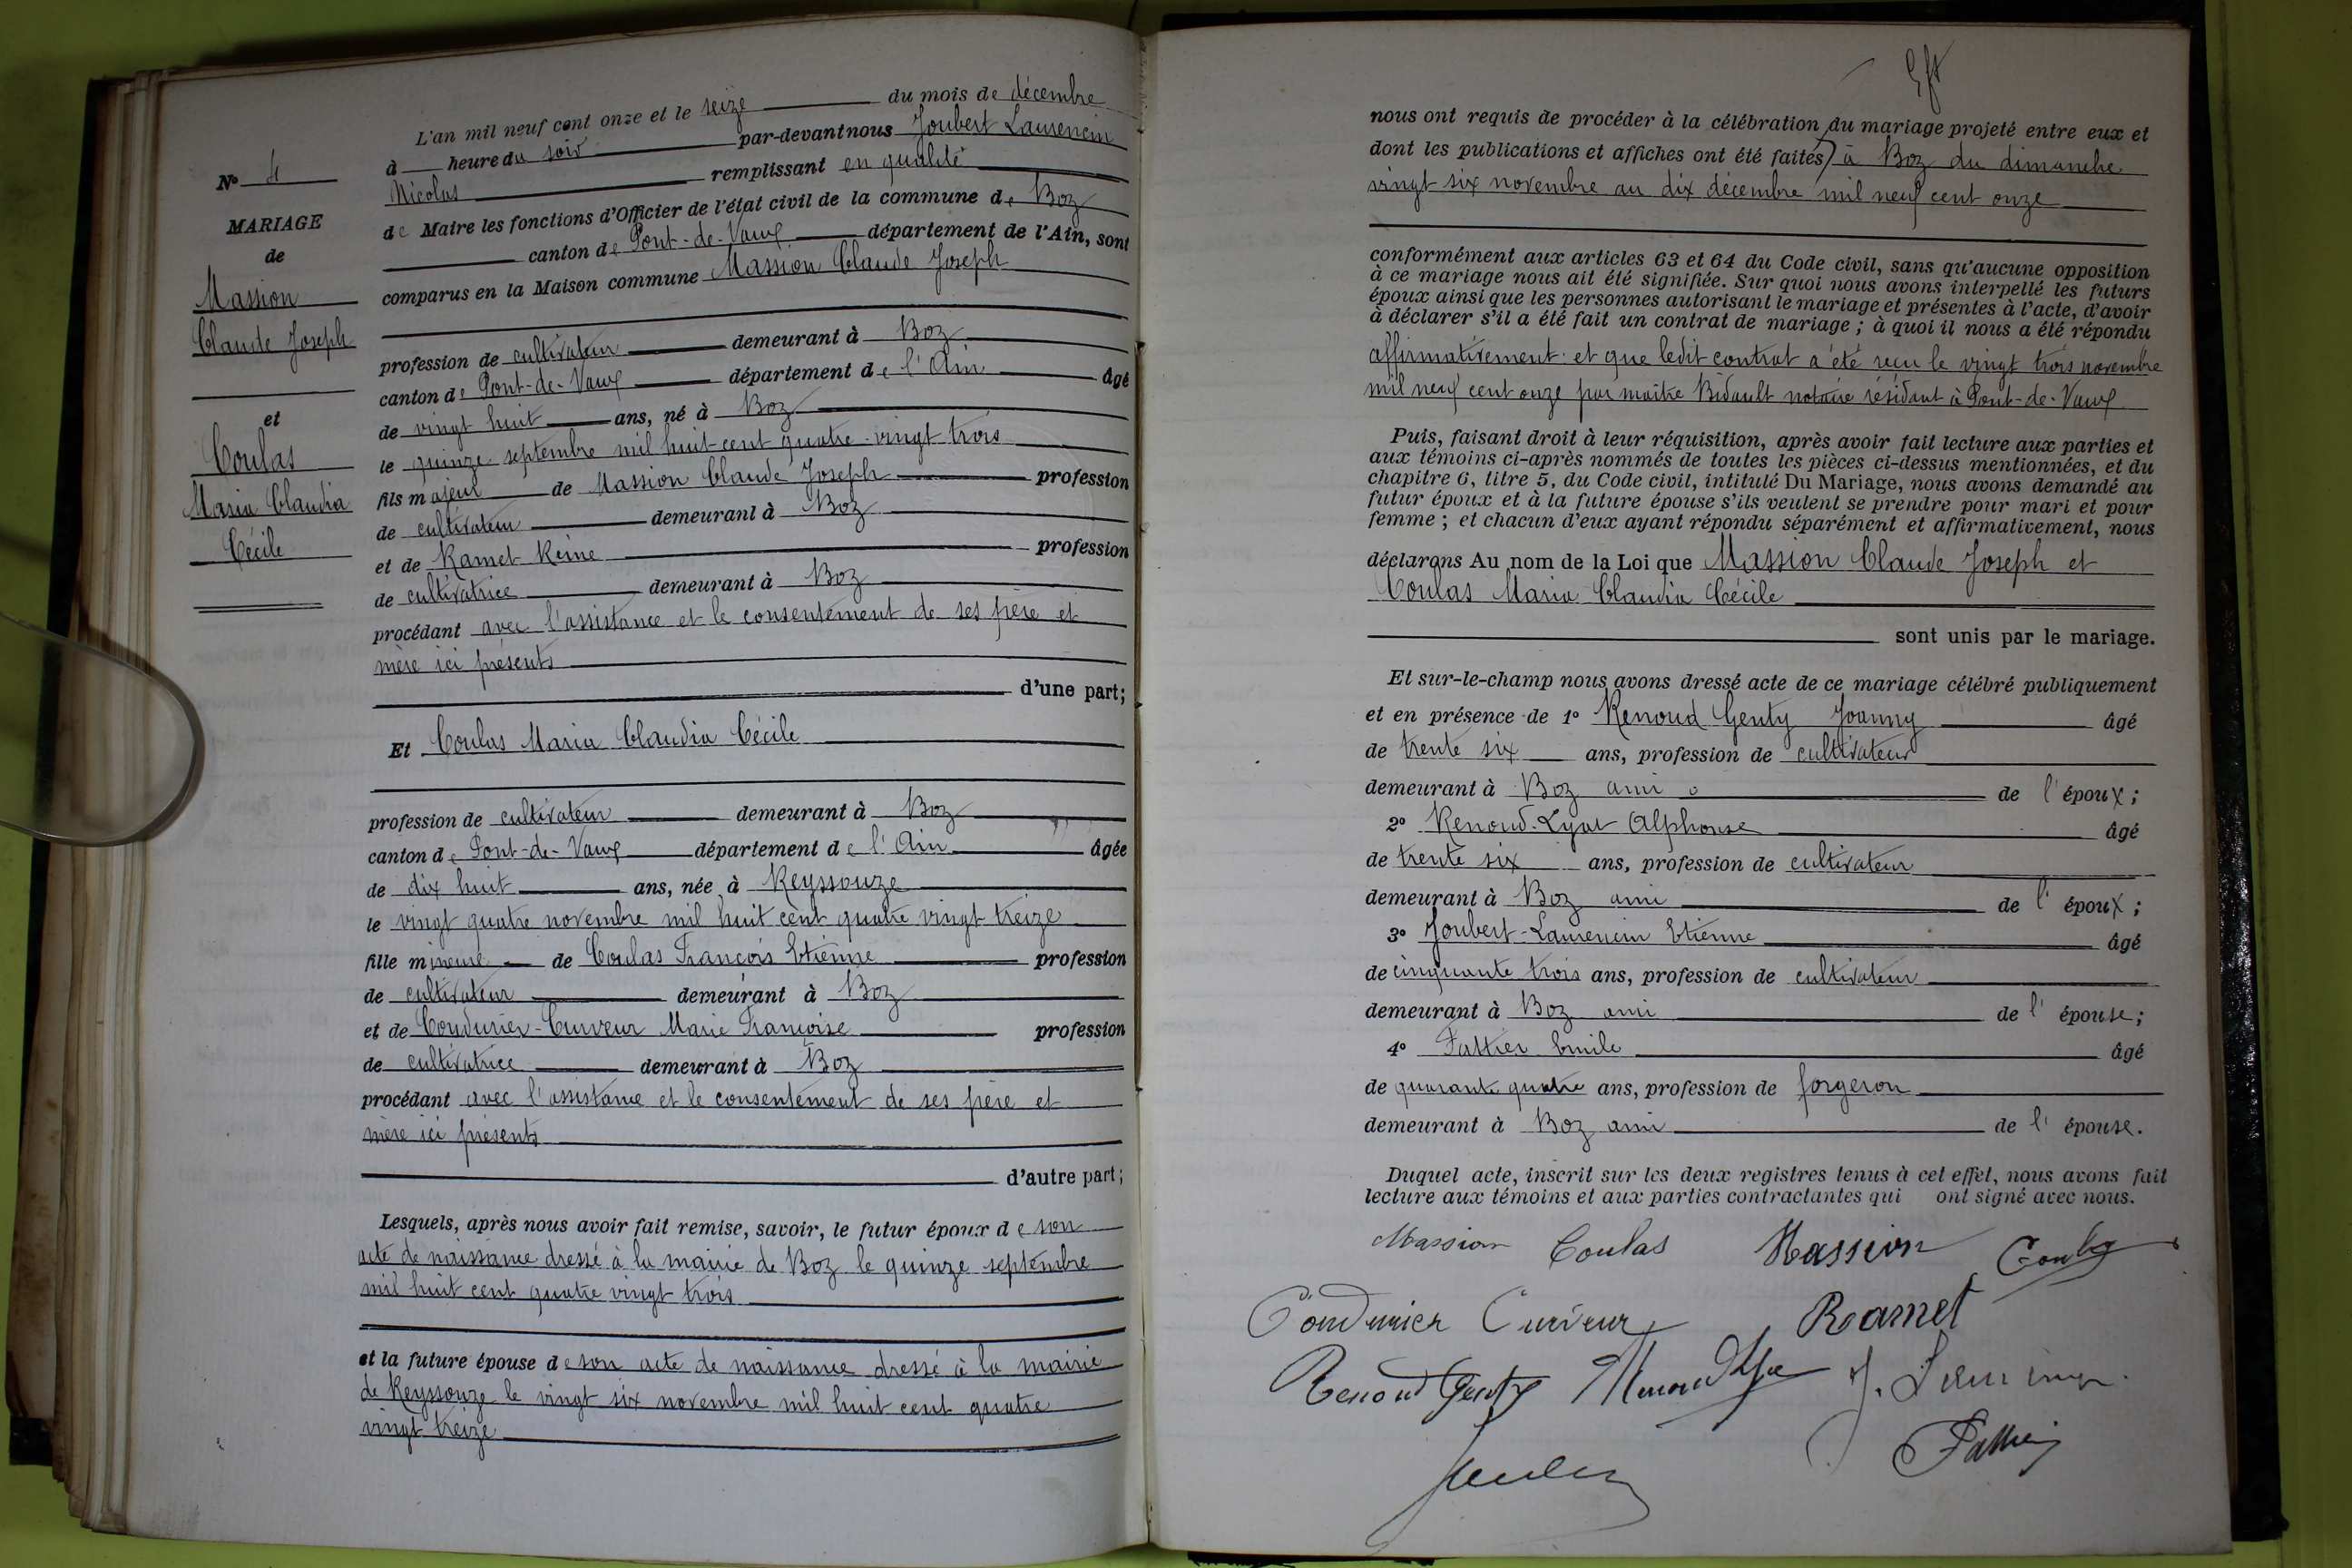 N° 4
MARIAGE
de
Massion
Claude Joseph
et
Coulas
Maria Claudia
Cécile
L'an mil neuf cent onze et le seize du mois de décembre
à heure du soir par-devant nous Joubert Laurencin
Nicolas remplissant en qualité
de Maire les fonctions d'Officier de l'état civil de la commune de Boz
canton de Pont-de-Vaux département de l'Ain, sont
comparus en la Maison commune Massion Claude Joseph
profession de cultivateur demeurant à Boz
canton de Pont-de-Vaux département de l'Ain âgé
de vingt huit ans, né à Boz
le quinze septembre mil huit cent quatre-vingt trois
fils majeur de Massion Claude Joseph profession
de cultivateur demeurant à Boz
et de Ramet Reine profession
de cultivatrice demeurant à Boz
procédant avec l'assistance et le consentement de ses père et
mère ici présents
d'une part;
Et Coulas Maria Claudia Cécile
profession de cultivateur demeurant à Boz
canton de Pont-de-Vaux département de l'Ain âgée
de dix huit ans, née à Reyssouze
le vingt quatre novembre mil huit cent quatre vingt treize
fille mineure de Coulas François Etienne profession
de cultivateur demeurant à Boz
et de Condurier-Curveur Marie Françoise profession
de cultivatrice demeurant à Boz
procédant avec l'assistance et le consentement de ses père et
mère ici présents
d'autre part;
Lesquels, après nous avoir fait remise, savoir, le futur époux de son
acte de naissance dressé à la mairie de Boz le quinze septembre
mil huit cent quatre vingt trois
et la future épouse de son acte de naissance dressé à la mairie
de Reyssouze le vingt six novembre mil huit cent quatre
vingt treize
nous ont requis de procéder à la célébration du mariage projeté entre eux et
dont les publications et affiches ont été faites à Boz du dimanche
vingt six novembre au dix décembre mil neuf cent onze
conformément aux articles 63 et 64 du Code civil, sans qu'aucune opposition
à ce mariage nous ait été signifiée. Sur quoi nous avons interpellé les futurs
époux ainsi que les personnes autorisant le mariage et présentes à l'acte, d'avoir
à déclarer s'il a été fait un contrat de mariage ; à quoi il nous a été répondu
affirmativement et que ledit contrat a été reçu le vingt trois novembre
mil neuf cent onze par maître Bidault notaire résidant à Pont-de-Vaux
Puis, faisant droit à leur réquisition, après avoir fait lecture aux parties et
aux témoins ci-après nommés de toutes les pièces ci-dessus mentionnées, et du
chapitre 6, litre 5, du Code civil, intitulé Du Mariage, nous avons demandé au
futur époux et à la future épouse s'ils veulent se prendre pour mari et pour
femme ; et chacun d'eux ayant répondu séparément et affirmativement, nous
déclarons Au nom de la Loi que Massion Claude Joseph et
Coulas Maria Claudia Cécile
sont unis par le mariage.
Et sur-le-champ nous avons dressé acte de ce mariage célébré publiquement
et en présence de 1° Renoud Genty Joanny âgé
de trente six ans, profession de cultivateur
demeurant à Boz ami de l'époux;
2° Renoud-Lyat Alphonse âgé
de trente six ans, profession de cultivateur
demeurant à Boz ami de l'époux;
3° Joubert-Laurencin Etienne âgé
de cinquante trois ans, profession de cultivateur
demeurant à Boz ami de l'épouse;
4° Fattier Emile âgé
de quarante quatre ans, profession de forgeron
demeurant à Boz ami de l'épouse.
Duquel acte, inscrit sur les deux registres tenus à cet effet, nous avons fait
lecture aux témoins et aux parties contractantes qui ont signé avec nous.
Massion Coulas Massion Coulas
Condurier Curveur Ramet
Renoud Genty
Fattier